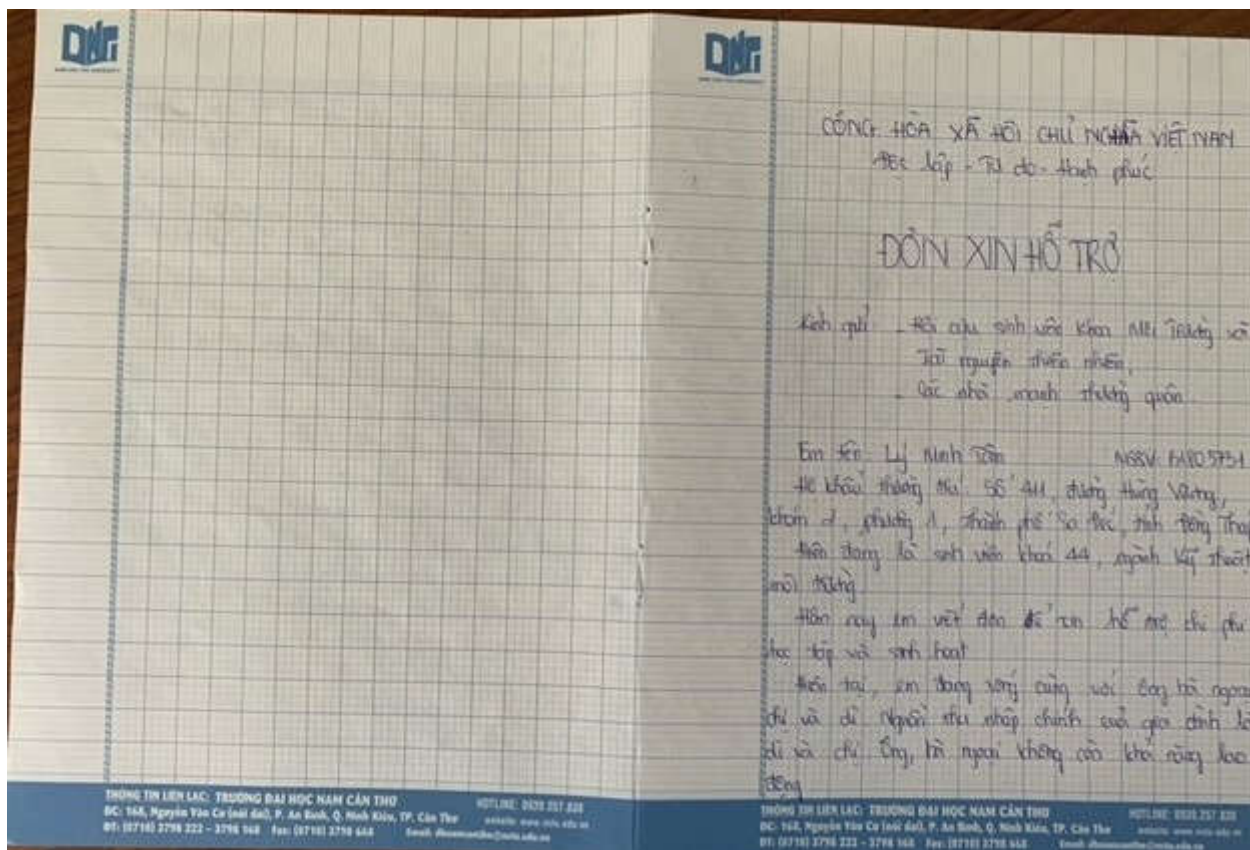 DNC
CỘNG HÒA XÃ HỘI CHỦ NGHĨA VIỆT NAM
Độc lập - Tự do - Hạnh phúc
ĐƠN XIN HỖ TRỢ
Kính gửi: - Hội cựu sinh viên khoa Môi Trường và
Tài nguyên thiên nhiên,
- Các nhà mạnh thường quân
Em tên: Lý Minh MSSV: B1805731
Hộ khẩu thường trú: Số 411, đường Hùng Vương,
khóm 2, phường 1, thành phố Sa Đéc, tỉnh Đồng Tháp
Hiện đang là sinh viên khoá 44, ngành kỹ thuật
môi trường
Hôm nay em viết đơn để xin hỗ trợ chi phí
học tập và sinh hoạt
Hiện tại, em đang sống cùng với ông bà ngoại
chị và dì. Nguồn thu nhập chính của gia đình là
dì và chị. Ông, bà ngoại không còn khả năng lao
động
THÔNG TIN LIÊN LẠC: TRƯỜNG ĐẠI HỌC NAM CẦN THƠ HOTLINE: 0939 257 838
ĐC: 168, Nguyễn Văn Cừ (nối dài), P. An Bình, Q. Ninh Kiều, TP. Cần Thơ
ĐT: (0710) 3798 222 - 3798 168 Fax: (0710) 3798 668
DNC
THÔNG TIN LIÊN LẠC: TRƯỜNG ĐẠI HỌC NAM CẦN THƠ HOTLINE: 0939 257 838
ĐC: 168, Nguyễn Văn Cừ (nối dài), P. An Bình, Q. Ninh Kiều, TP. Cần Thơ
ĐT: (0710) 3798 222 - 3798 168 Fax: (0710) 3798 668